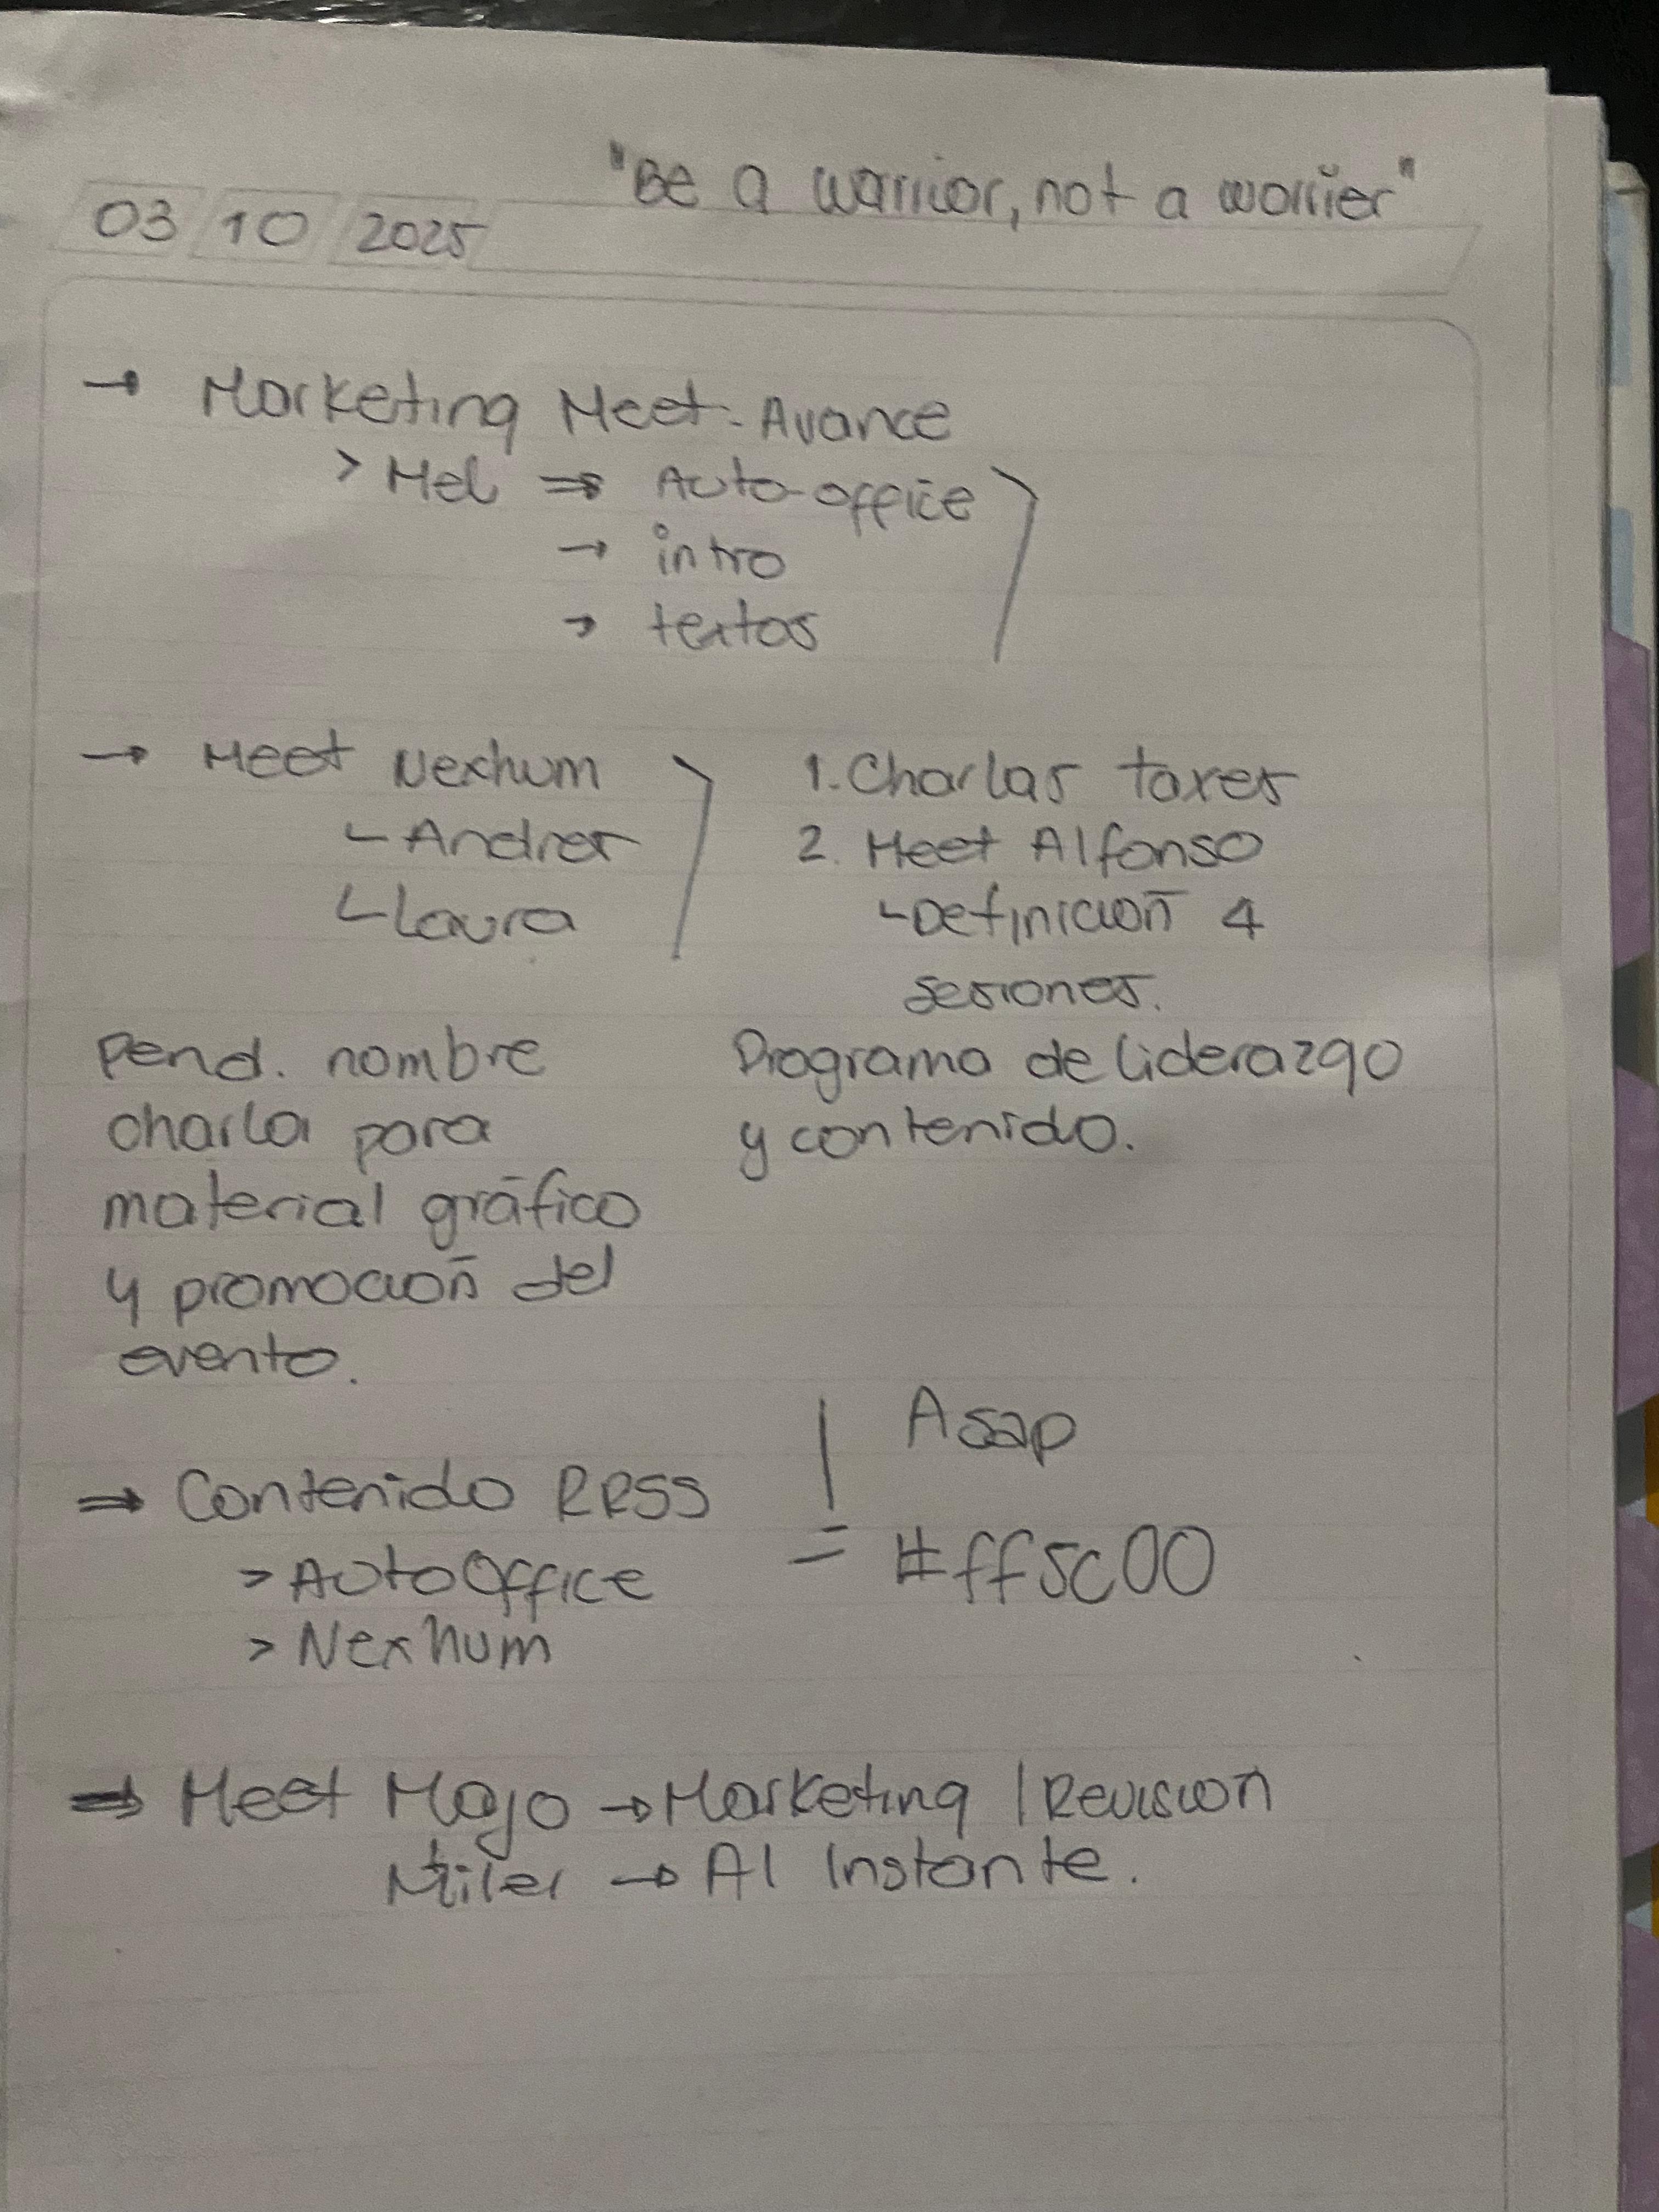 "Be a warrior, not a worrier"
03 10 2025
→ Marketing Meet - Avance
> Mel ⇒ Auto-office
→ intro
→ textos
→ Meet Nexhum
└ Andres
└ Laura
1. Charlas taxes
2. Meet Alfonso
└ Definición 4
sesiones.
Pend. nombre
charla para
material gráfico
y promoción del
evento.
Programa de liderazgo
y contenido.
⇒ Contenido RRSS
> AutoOffice
> Nexhum
| Asap
= #ff5c00
⇒ Meet Majo → Marketing | Revisión
→ Al Instante.